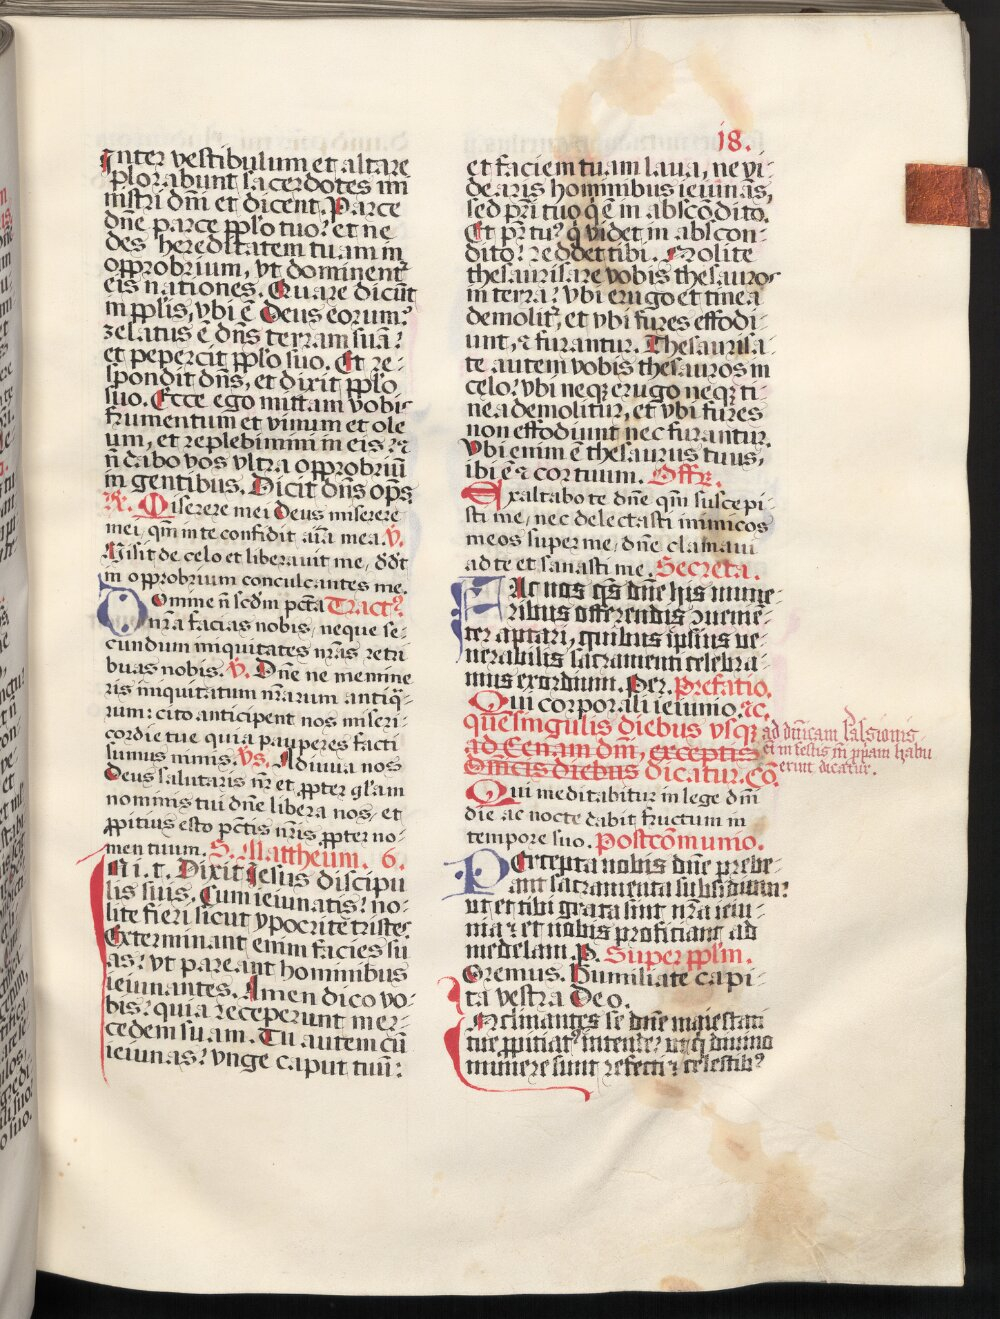 18.
Inter vestibulum et altare
plorabunt sacerdotes mi
nistri dñi et dicent. Parce
dñe parce pplo tuo: et ne
des hereditatem tuam in
opprobrium, vt dominent᷑
eis nationes. Quare dicũt
in pplis, vbi ẽ Deus eorum?
zelatus ẽ dñs terram suã:
et pepercit pplo suo. Et re-
spondit dñs, et dixit pplo
suo. Ecce ego mittam vobis
frumentum et vinum et ole
um, et replebimini in eis: ⁊
ñ dabo vos vltra opprobriũ
in gentibus. Dicit dñs ops̃
R. Miserere mei Deus miserere
mei, qm̃ in te confidit aĩa mea. V.
Misit de celo et liberauit me, ddt
in opprobrium conculcantes me.
Domine ñ scdm pctã Tract9.
nrã facias nobis, neque se-
cundum iniquitates nrãs retri
buas nobis. V. Dñe ne memine
ris iniquitatum nrãrum antiq̃-
rum: cito anticipent nos miseri-
cordie tue quia pauperes facti
sumus nimis. Vs. Adiuua nos
Deus salutaris nr̃ et ppter glãm
nominis tui dñe libera nos, et
ppitius esto pctis nris ppter no-
men tuum. S. Mattheum. 6.
In i. t. Dixit Iesus discipu
lis suis. Cum ieiunatis: no-
lite fieri sicut ypocrite tristes
Exterminant enim facies su
as: vt pareant hominibus
ieiunantes. Amen dico vo-
bis: quia receperunt mer-
cedem suam. Tu autem cũ
ieiunas: vnge caput tuũ:
et faciem tuam laua, ne vi-
dearis hominibus ieiunãs,
sed pr̃i tuo q̃ ẽ in abscõdito.
Et pr̃ tu9 q̃ videt in abscon-
dito: reddet tibi. Nolite
thesaurisare vobis thesauros
in terra: vbi erugo et tinea
demolit᷑, et vbi fures effodi-
unt, ⁊ furantur. Thesaurisa-
te autem vobis thesauros in
celo: vbi neq3 erugo neq3 ti-
nea demolitur, et vbi fures
non effodiunt nec furantur.
Vbi enim ẽ thesaurus tuus,
ibi ẽ ⁊ cor tuum. Offr.
Exaltabo te dñe qm̃ suscepi-
sti me, nec delectasti inimicos
meos super me, dñe clamaui
ad te et sanasti me. Secreta.
Fac nos q̃s dñe his mune-
ribus offerendis ꝯuenien-
ter aptari, quibus ipsius ve-
nerabilis sacramenti celebra-
mus exordium. Per. Prefatio.
Qui corporali ieiunio. ⁊c.
que singulis diebus vsq3
ad Cenam dñi, exceptis
Officiis diebus dicatur. Cõ.
ad dñicam Passionis
et in festis
erint dicatur.
Qui meditabitur in lege dñi
die ac nocte dabit fructum in
tempore suo. Postcõmunio.
Percepta nobis dñe prebe-
ant sacramenta subsidium:
ut et tibi grata sint nrã ieiu-
nia: et nobis proficiant ad
medelam. P. Super pplm̃.
Oremus. Humiliate capi-
ta vestra Deo.
Inclinantes se dñe maiestati
tue ppitiat9 intende: ut q̃ diuino
munere sunt refecti: celestib9